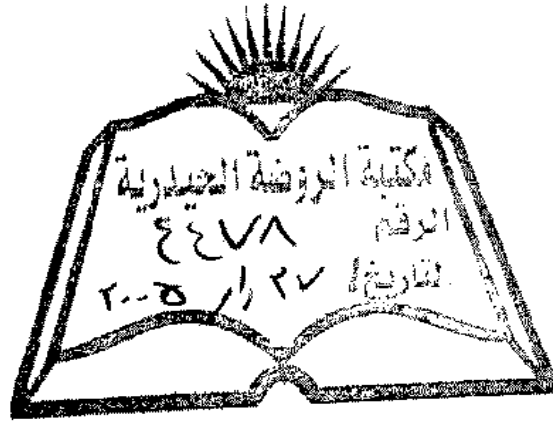 مكتبة الروضة الحيدرية
الرقم ٤٤٧٨
التاريخ / ٢٧ / ٢٠٠٥